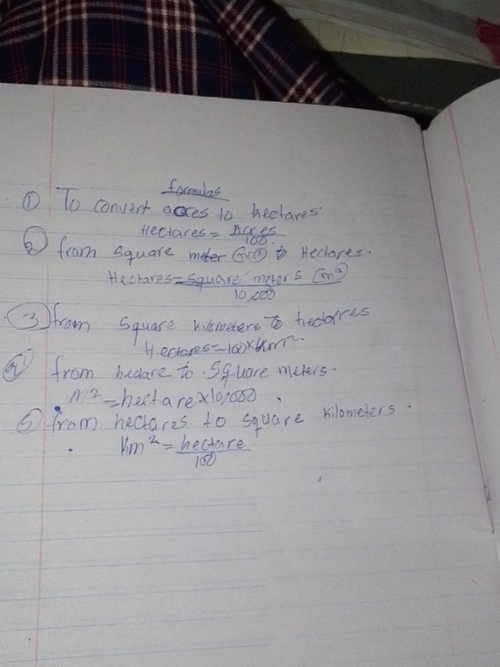 formulas
① To convert acres to hectares.
Hectares = Acres
100.
② from square meter (m²) to Hectares.
Hectares = square meters (m²)
10,000
③ from square kilometers to hectares
Hectares = 100 x Km².
④ from hectare to square meters.
M² = hectare x 10,000.
⑤ from hectares to square kilometers.
Km² = hectare
100